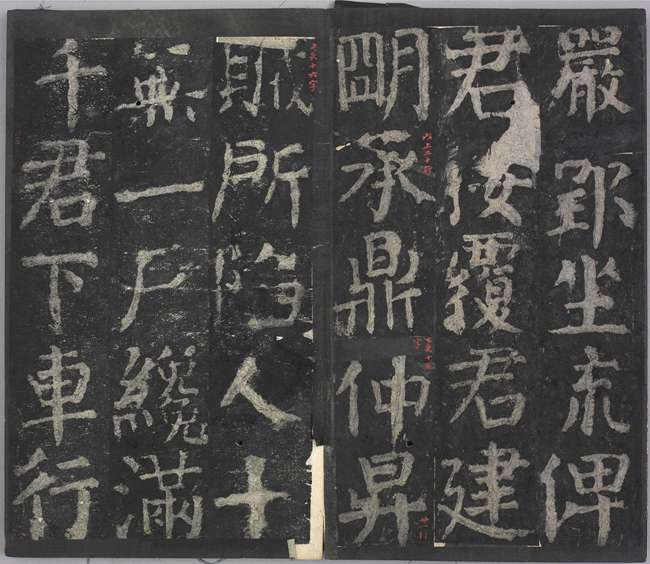 嚴郢坐流俾
君按覆君建
朙承鼎仲昇
賊所陷人十
無一戶纔滿
千君下車行